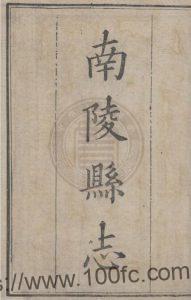 南陵縣志
://www.100fc.com